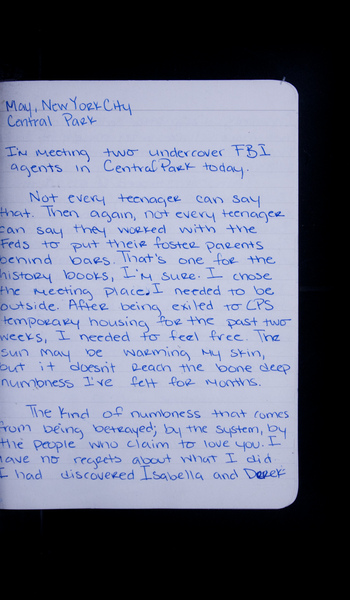 May, New York City
Central Park
I'm meeting two undercover FBI
agents in Central Park today.
Not every teenager can say
that. Then again, not every teenager
can say they worked with the
Feds to put their foster parents
behind bars. That's one for the
history books, I'm sure. I chose
the meeting place. I needed to be
outside. After being exiled to CPS
temporary housing for the past two
weeks, I needed to feel free. The
sun may be warming my skin,
but it doesn't reach the bone deep
numbness I've felt for months.
The kind of numbness that comes
from being betrayed; by the system, by
the people who claim to love you. I
have no regrets about what I did
I had discovered Isabella and Derek